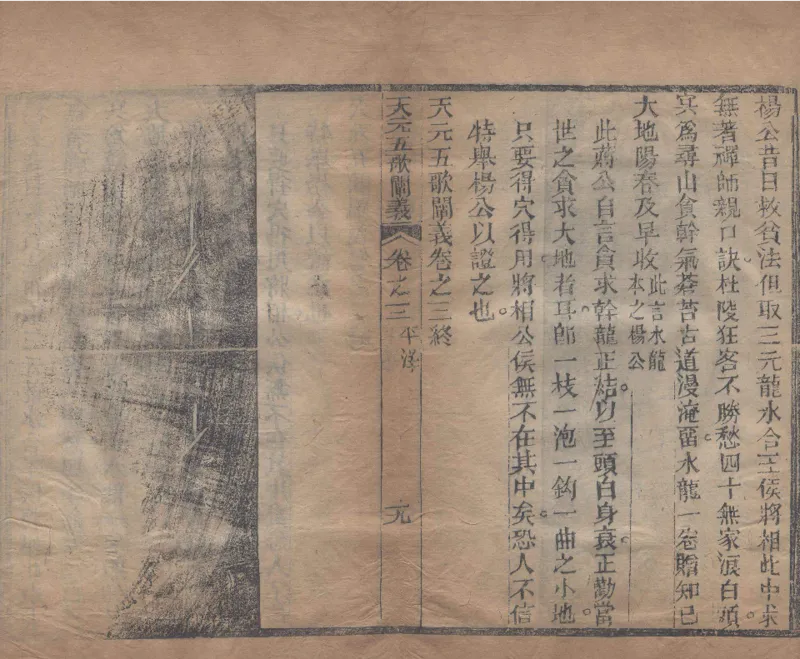 楊公昔日救貧法但取三元龍水合王侯將相此中求
無著禪師親口訣杜陵狂客不勝愁四十無家浪白頭
為尋山貪幹氣蒼苔古道漫淹畱水龍一卷贈知已
大地陽春及早收此言水龍
本之楊公
此蔣公自言貪求幹龍正結以至頭白身衰正勸當
世之貪求大地者耳師一枝一泡一鈎一曲之小地
只要得穴得用將相公侯無不在其中矣恐人不信
特舉楊公以證之也
天元五歌闡義卷之三終
天元五歌闡義 卷之三 平洋